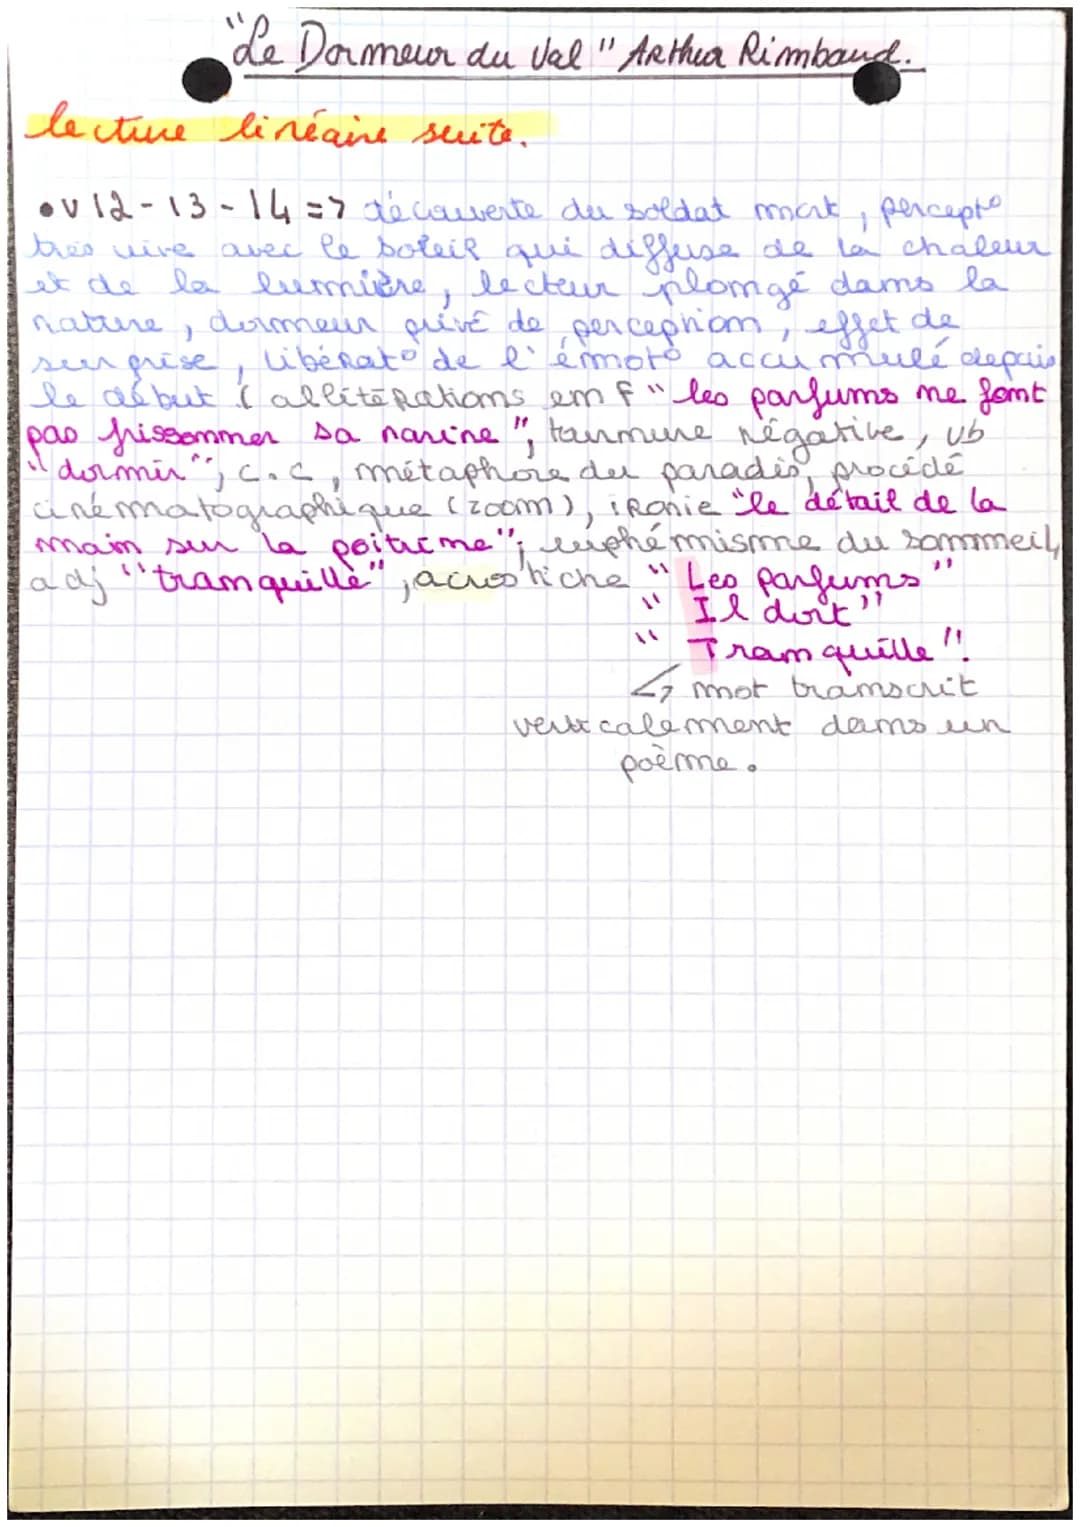 "Le Dormeur du Val" Arthur Rimbaud.
lecture linéaire suite.
• v 12 - 13 - 14 => découverte du soldat mort, percept°
très vive avec le soleil qui diffuse de la chaleur
et de la lumière, lecteur plongé dans la
nature, dormeur privé de perception, effet de
surprise, libérat° de l'émot° accumulé depuis
le début (allitérations en F "les parfums ne font
pas frissonner sa narine", tournure négative, vb
"dormir", c.c, métaphore du paradis, procédé
cinématographique (zoom), ironie "le détail de la
main sur la poitrine", euphémisme du sommeil,
adj "tranquille", acrostiche "Les parfums"
"Il dort"
"Tranquille".
↳ mot transcrit
verticalement dans un
poème.